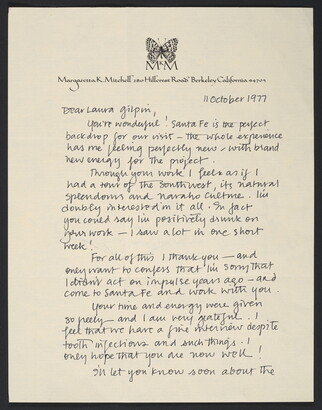 M&M
Margaretta K. Mitchell 280 Hillcrest Road Berkeley California 94705
11 October 1977
Dear Laura Gilpin,
You're wonderful! Santa Fe is the perfect
backdrop for our visit – the whole experience
has me feeling perfectly new – with brand
new energy for the project.
Through your work I feel as if I
had a tour of the Southwest, its natural
splendours and navaho culture. I'm
doubly interested in it all. In fact
you could say I'm positively drunk on
your work – I saw a lot in one short
week!
For all of this I thank you – and
only want to confess that I'm sorry that
I didn't act on impulse years ago – and
come to Santa Fe and work with you.
Your time and energy were given
so freely – and I am very grateful. I
feel that we have a fine interview despite
tooth infections and such things. I
only hope that you are now well!
I'll let you know soon about the